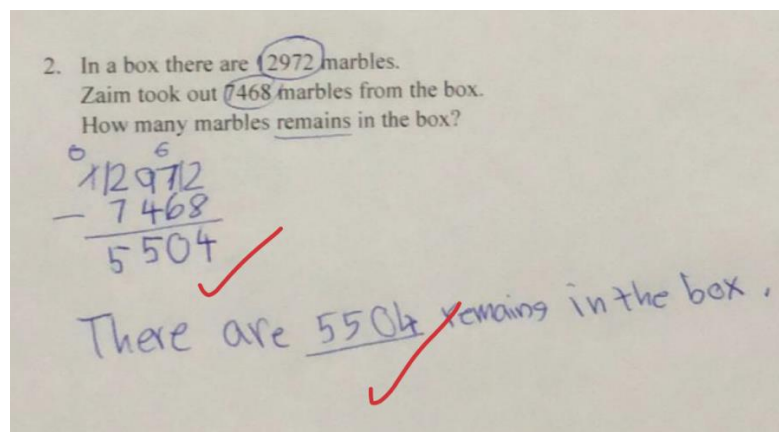 2. In a box there are 12972 marbles.
Zaim took out 7468 marbles from the box.
How many marbles remains in the box?
0 6
112 9712
- 7 468
5 504
There are 5504 remaing in the box.